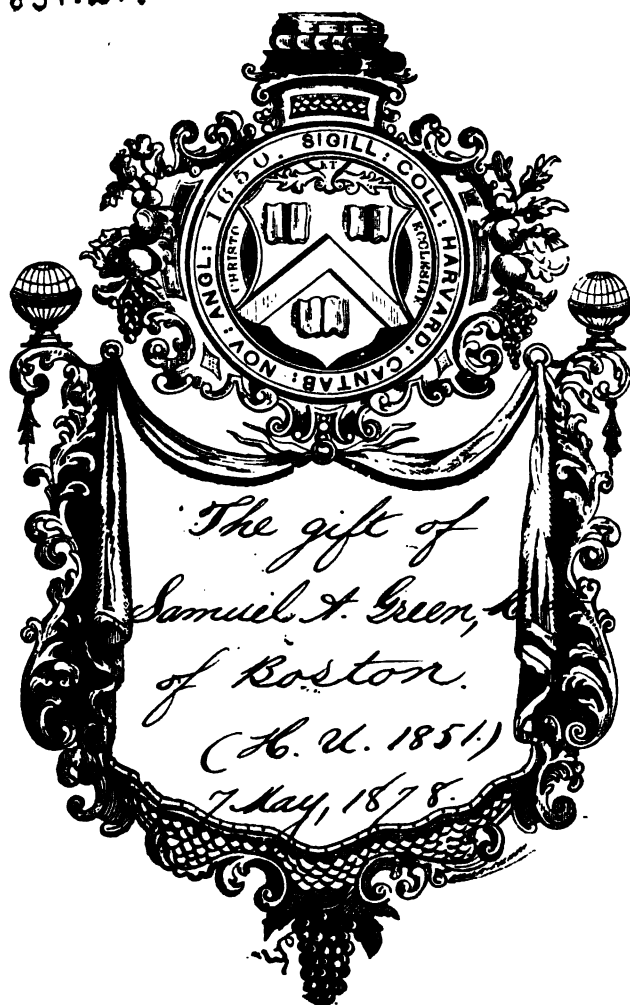 SIGILL: COLL: HARVARD: CANTAB: NOV: ANGL: 1650.
CHRISTO
ET
ECCLESIAE
The gift of
Samuel A. Green,
of Boston.
(H. U. 1851.)
7 May, 1878.